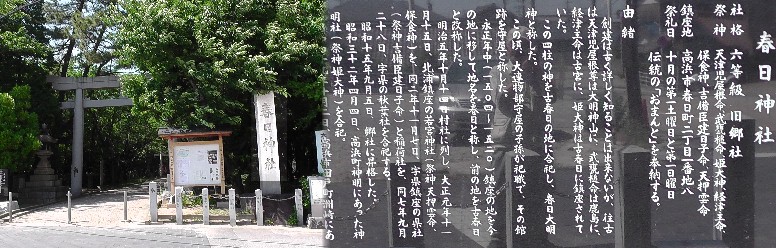 春日神社
春日神社
社格 六等級 旧郷社
祭神 天津児屋根命・武甕槌命・姫大神・経津主命、
保食神・吉備臣建日子命・天押雲命
鎮座地 高浜市春日町二丁目一番地八
祭礼日 十月の第一土曜日と第一日曜日
伝統の「おまんと」を奉納する。
由緒
創建は古く詳しく知ることは出来ないが、往古
は天津児屋根尊は大明神山に、武甕槌命は鹿島に、
経津主命は古宮に、姫大神は古春日に鎮座されて
いた。
この四柱の神を古春日の地に合祀し、春日大明
神と称した。
この頃、大連物部守屋の子孫が祀職で、その館
跡を守屋と称した。
永正年中(一五〇四～一五二〇)鎮座の地を今
の地に移して地名を春日と称し、前の地を古春日
と改称した。
明治五年十月十四日村社に列し、大正元年十一
月十五日、北浦鎮座の若宮神社(祭神天押雲命、
保食神)を、同二年十一月七日、字県鎮座の県社
(祭神吉備臣建日子命)と稲荷社を、同七年九月
二十八日、字県の秋葉社を合祀する。
昭和十五年九月五日、郷社に昇格した。
昭和三十二年四月四日、高浜町神明にあった神
明社(祭神姫大神)を合祀。
高浜市田戸町洲崎にあ